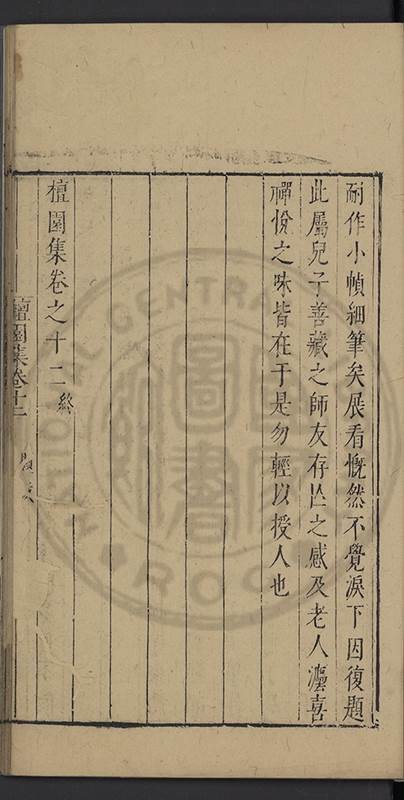 耐作小幀細筆矣展看慨然不覺淚下因復題
此屬兒子善藏之師友存亾之感及老人灋喜
禪悅之味皆在于是勿輕以授人也
檀園集卷之十二終
檀園集卷十二